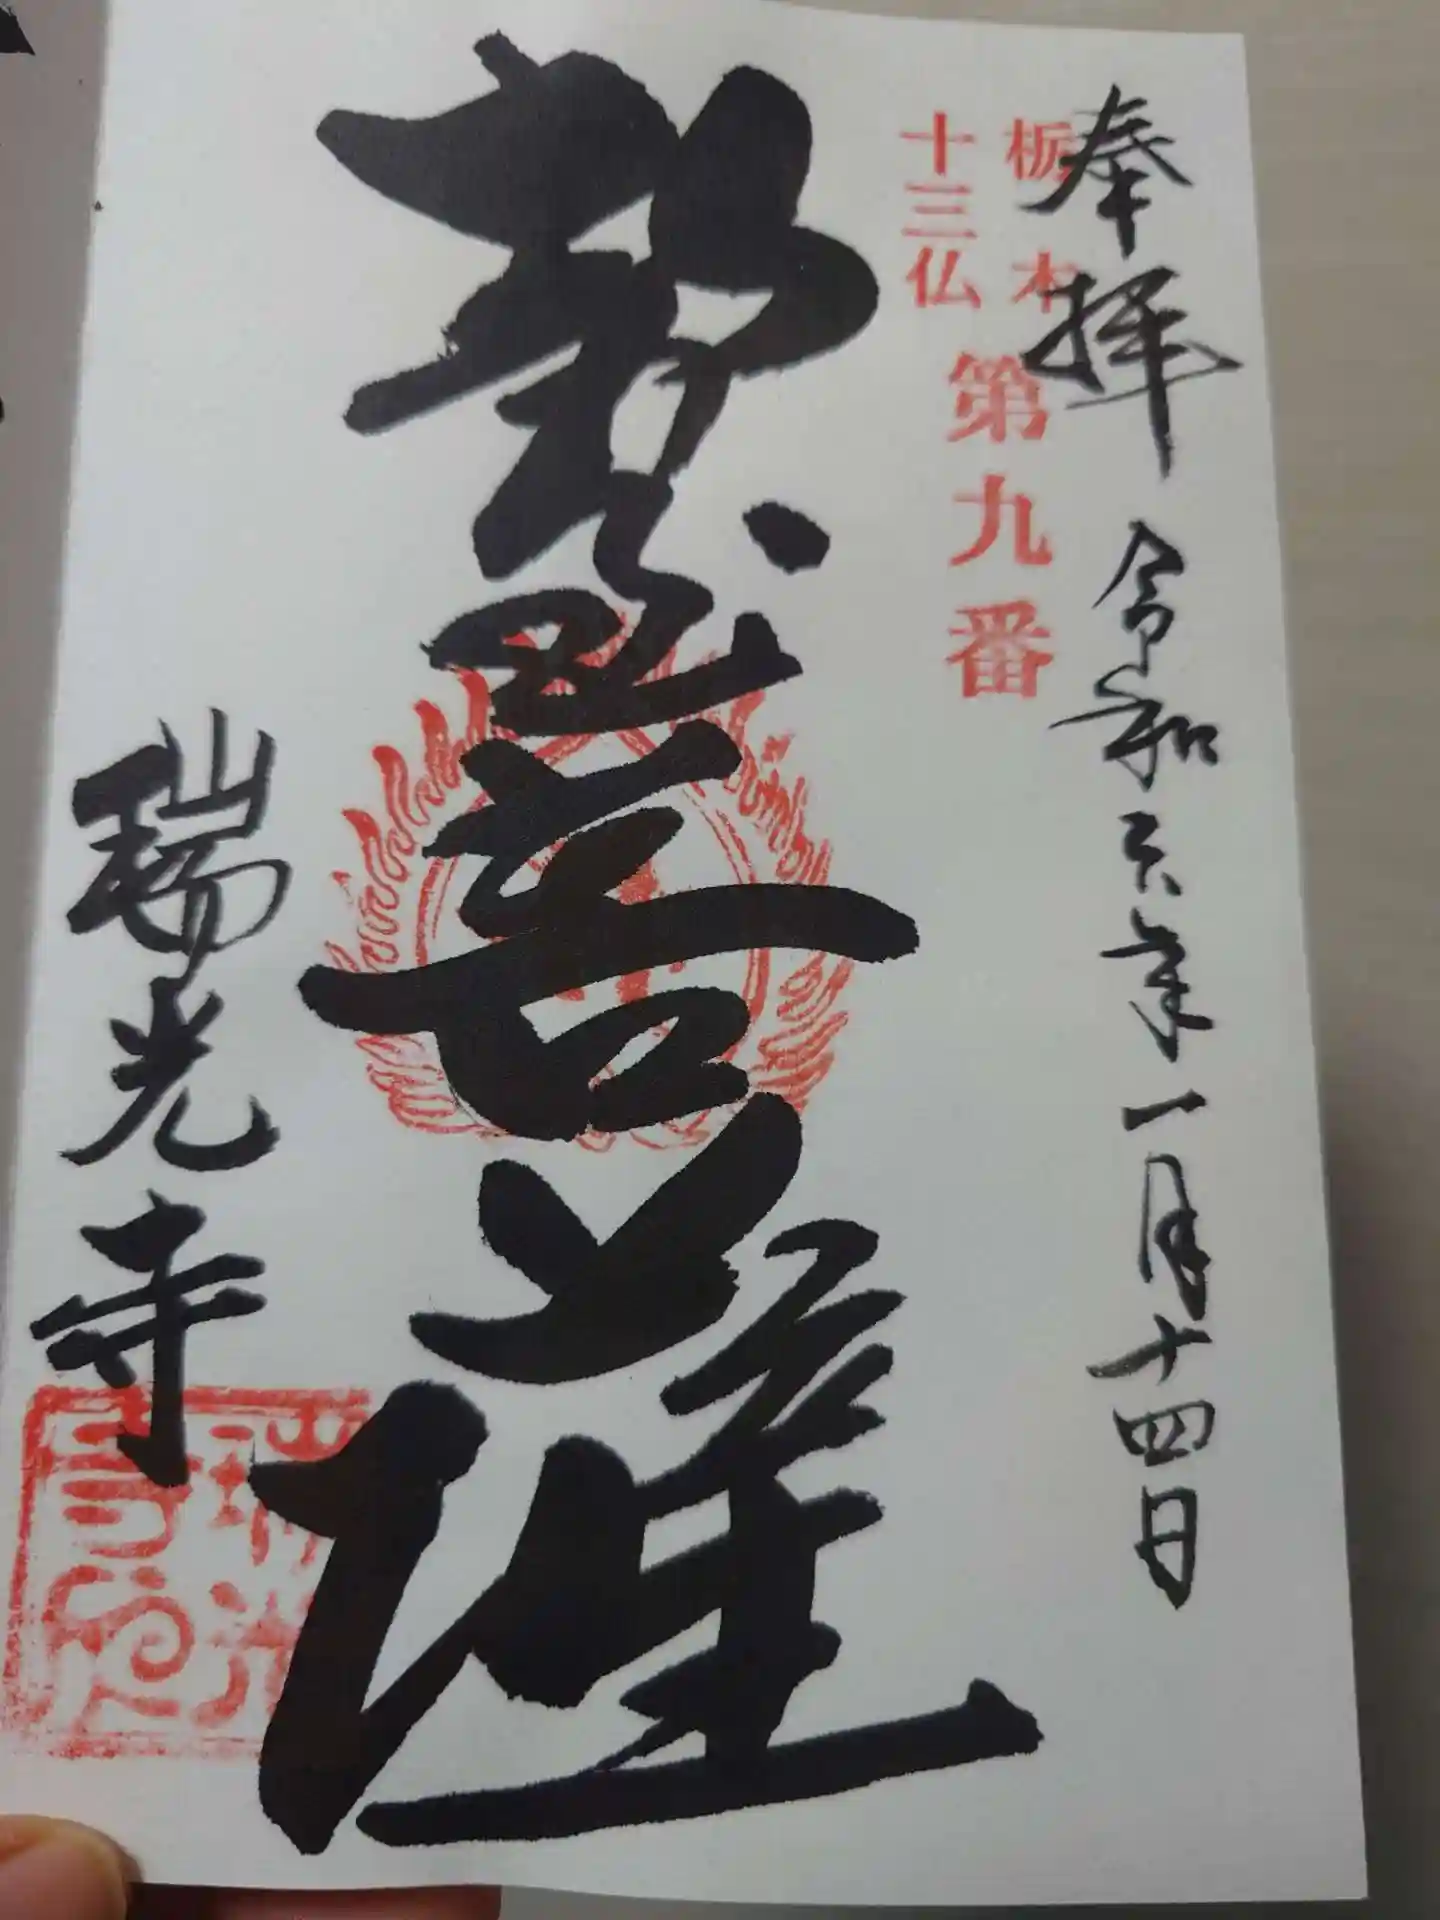 奉拝 令和六年一月十四日
栃木
十三仏
第九番
勢至菩薩
瑞光寺